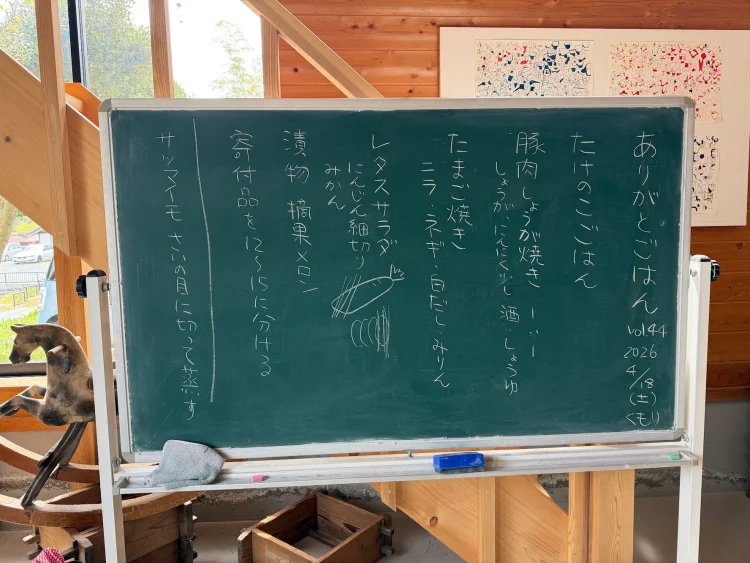 ありがとごはん
vol44
2026
4/18
(土)
くもり
たけのこごはん
豚肉しょうが焼き 1:1:1
しょうが、にんにく 酒・しょうゆ
たまご焼き
ニラ・ネギ・白だし・みりん
レタスサラダ
にんじん細切り
みかん
漬物 摘果メロン
寄付品を12〜15に分ける
サツマイモ さいの目に切って蒸す